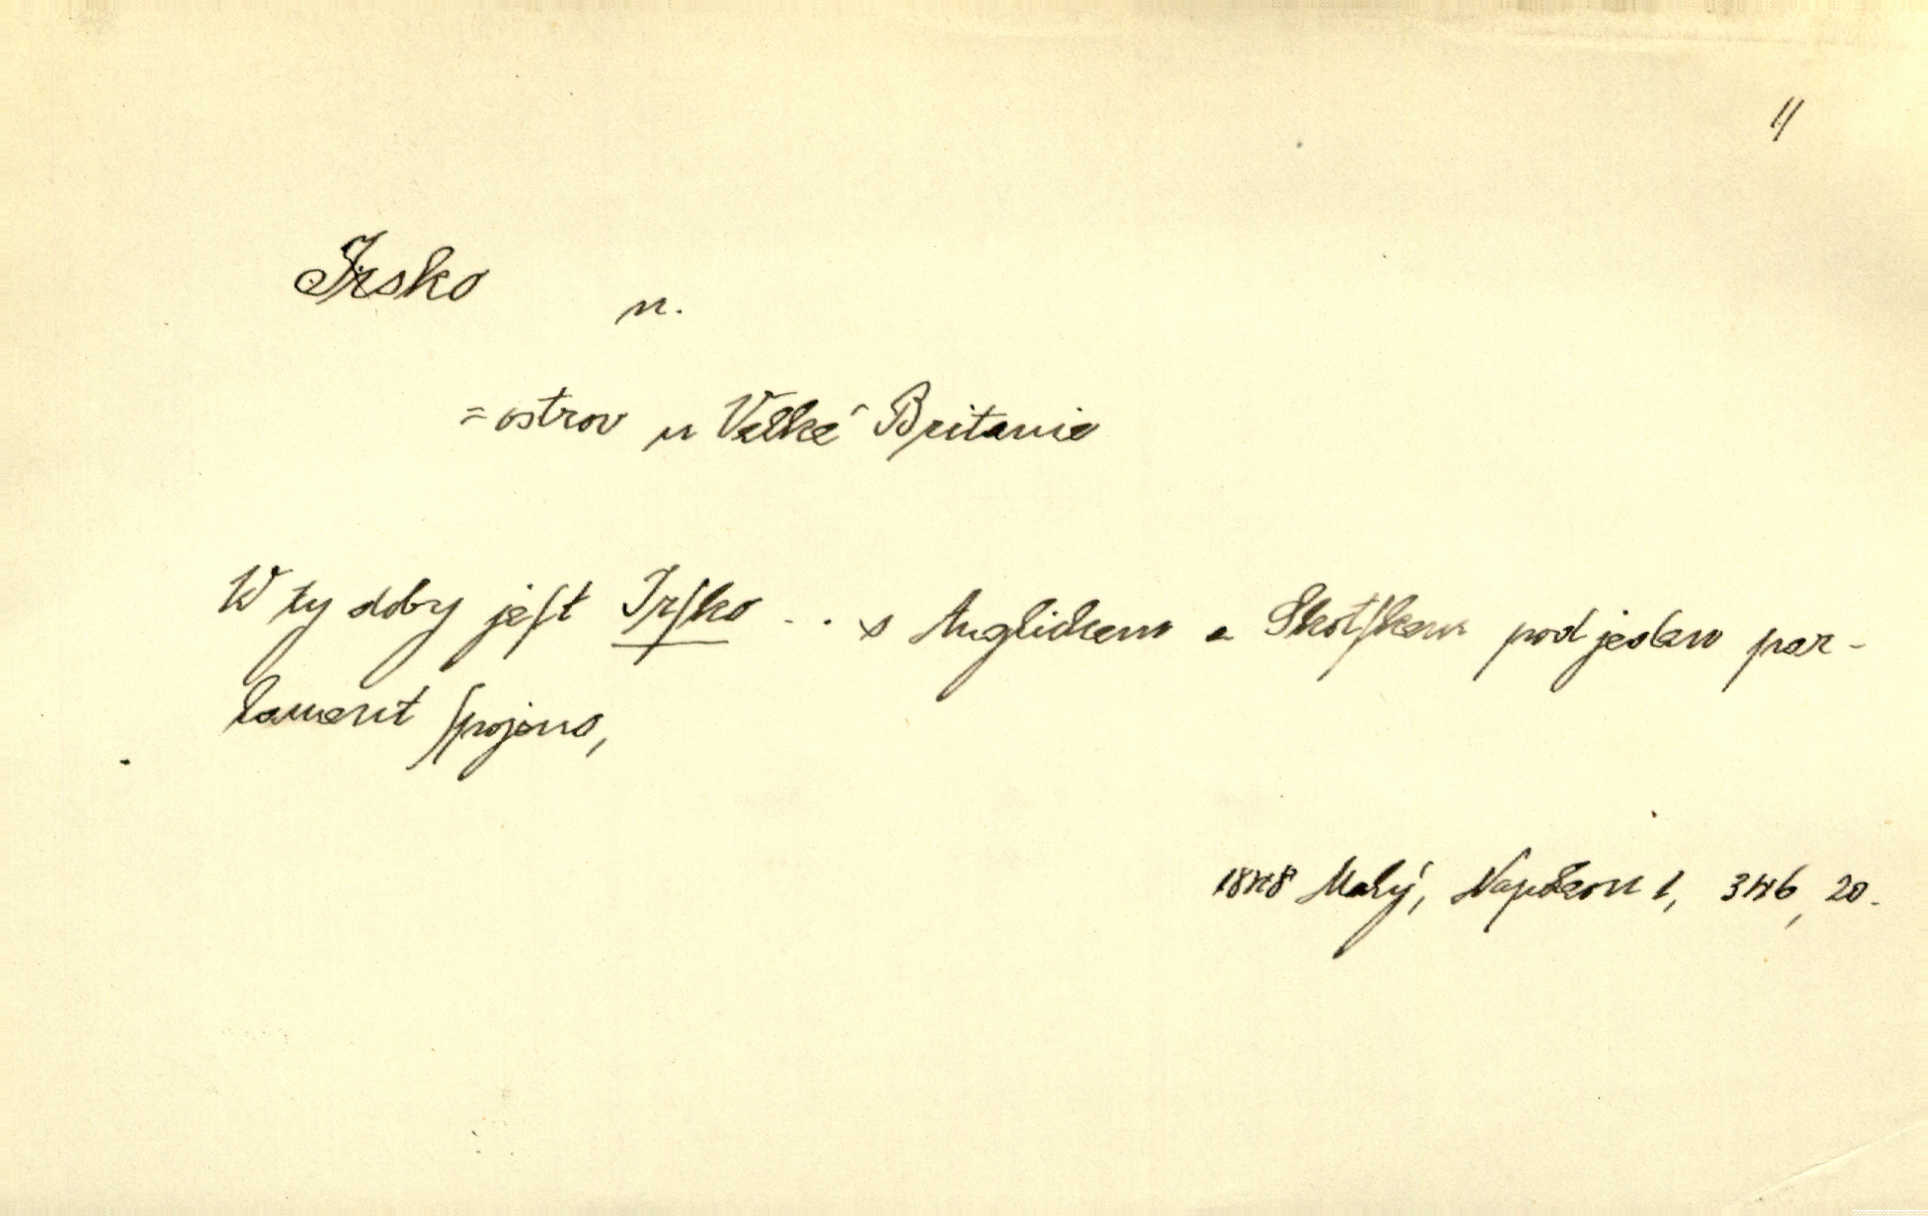 //
Irsko n.
= ostrov u Velké Britanie
W ty doby jeſt Irſko .. s Anglickem a Skotſkem pod jeden par-
lament ſpojeno,
1848 Malý, Napoleon 1, 346, 20.